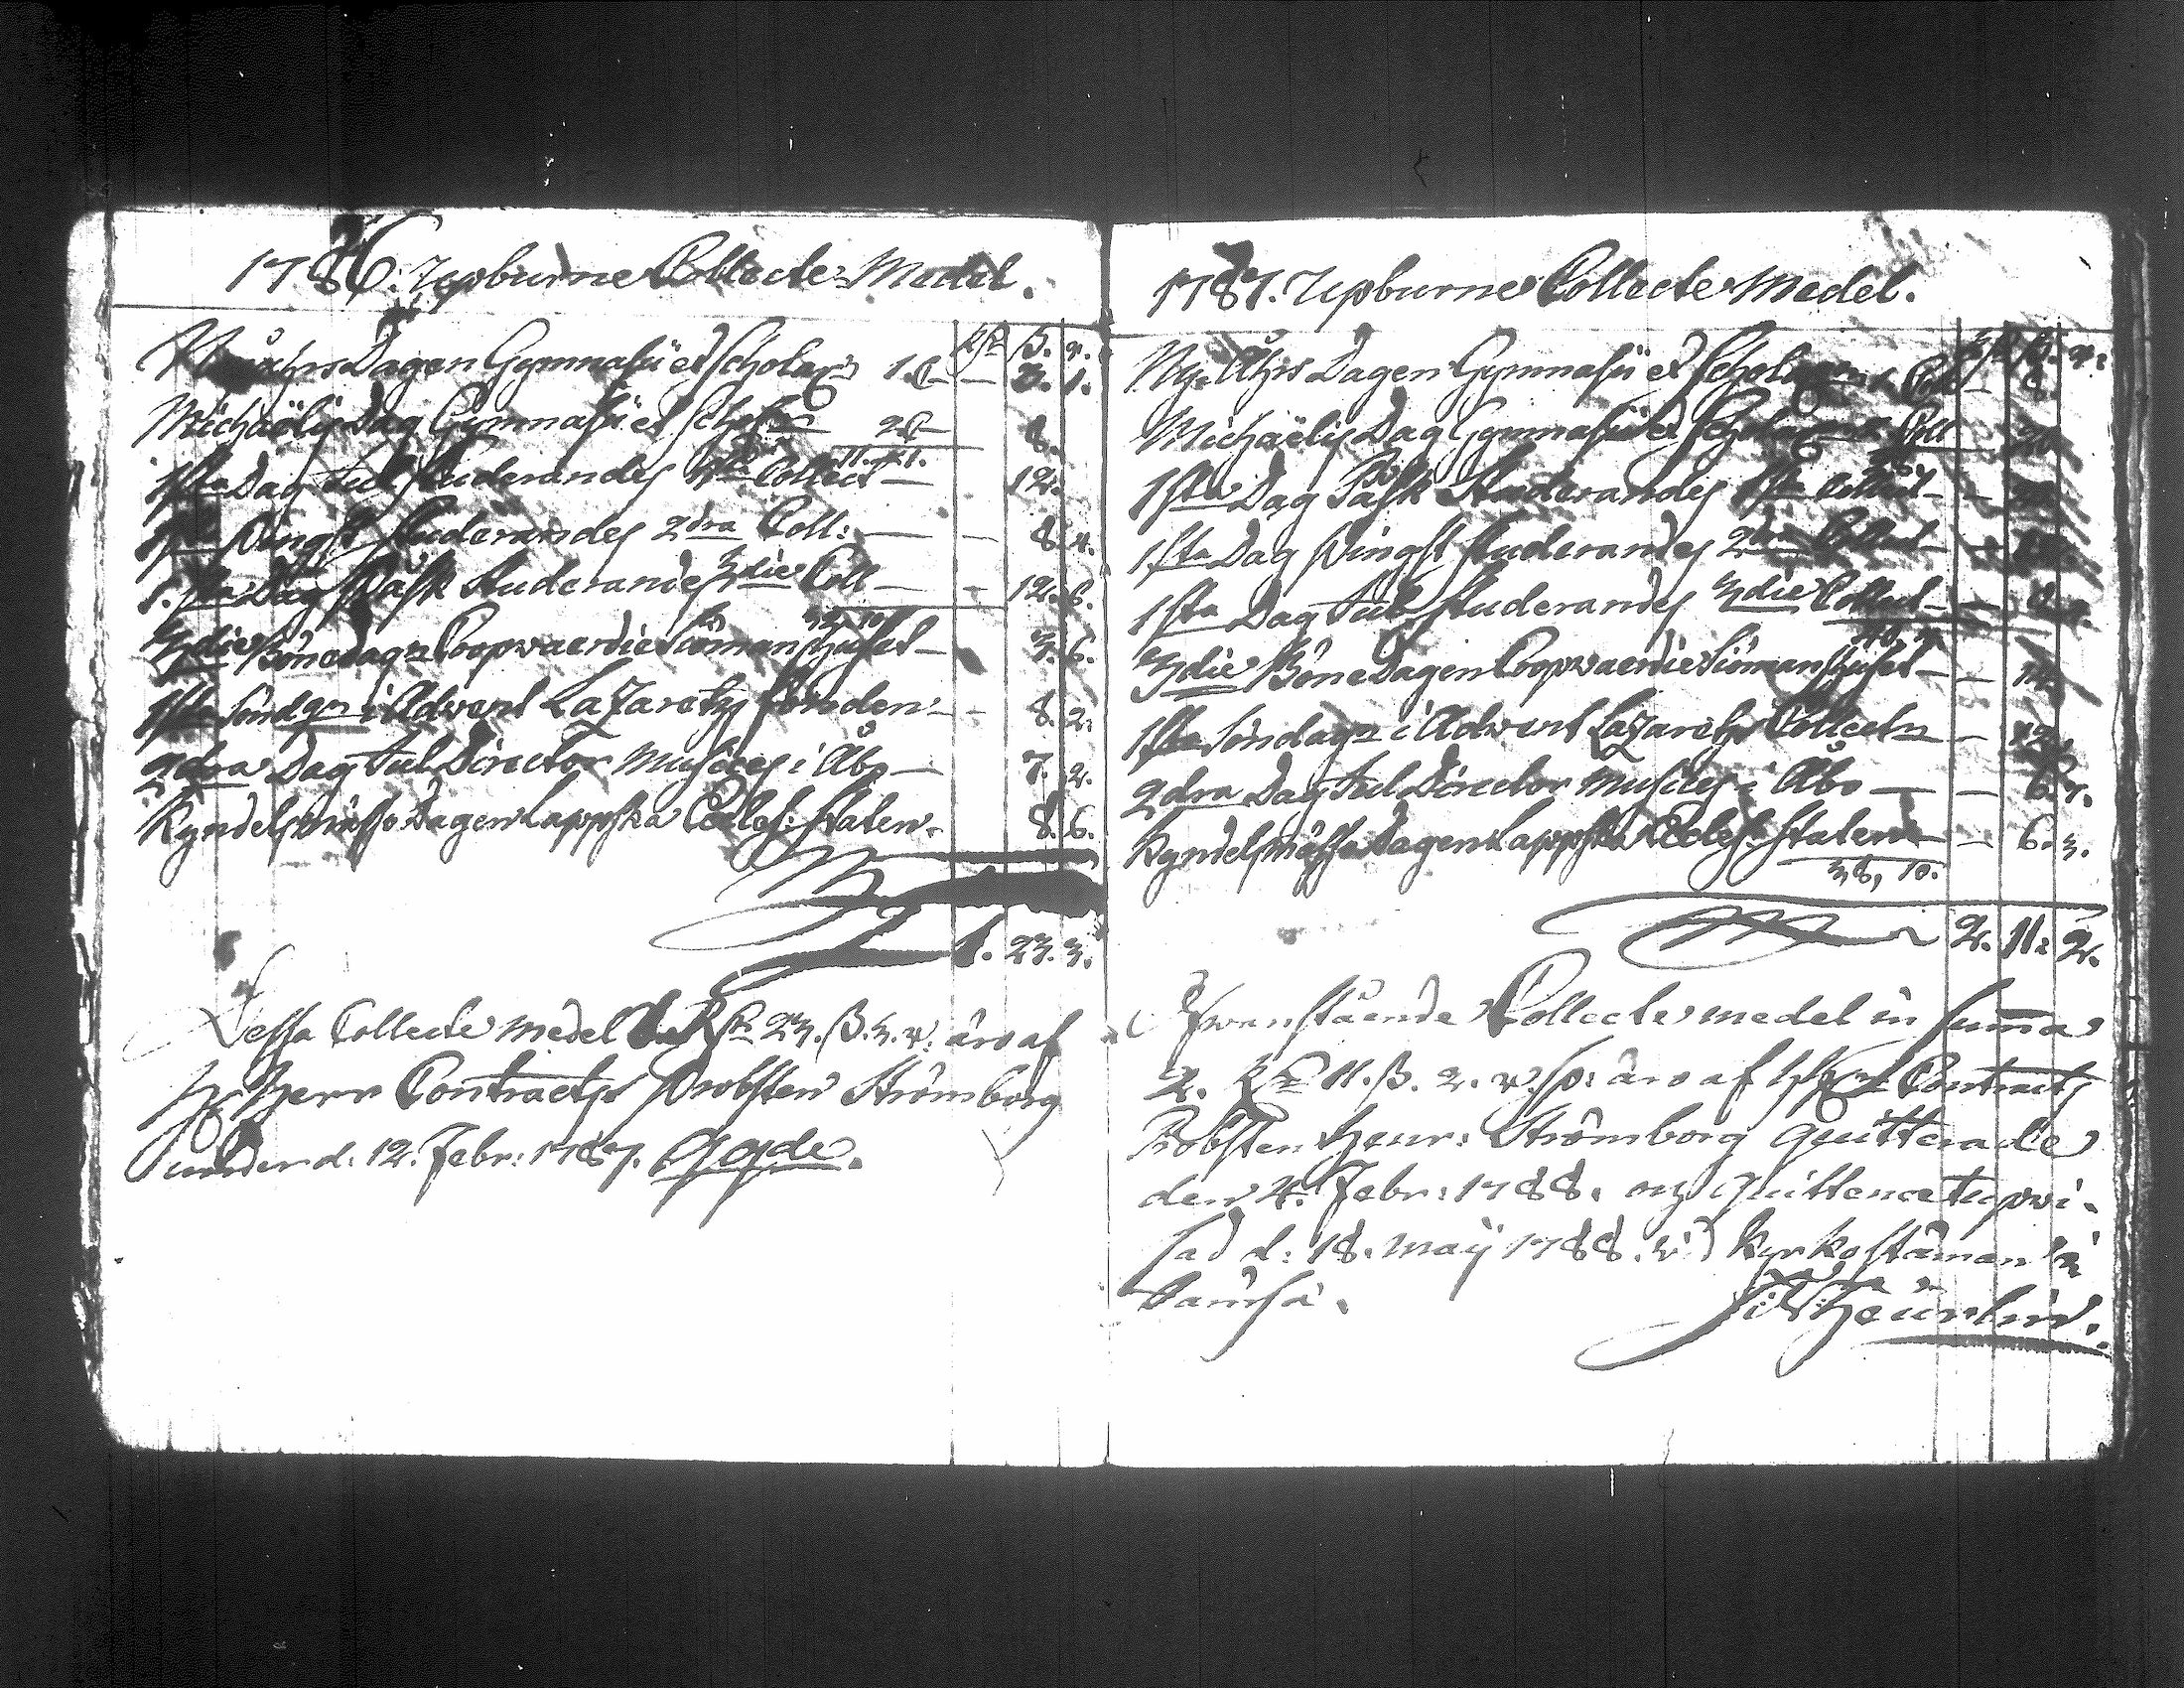 1786. Upburne Collecte Medel.
Rd ß. r.
Ny åhrsDagen Gymnasii et Scholar 1. C — — 3. 1.
Michaëlis Dag Gymnasii et Schol 2 C 8.
11. 1.
1sta Dag Jul Studerandes Collect — 12.
1sta Pingst Studerandes 2dra Coll: — — 8. 4.
1. sta Dag Påsk Studerandes 3die Coll — - 12. 6.
32. 10
3die BöneDagn Coopvaerdie Siöman huset — 3. 6.
1sta Söndgn i Advent Lazaretzs fonden — - 8. 2.
2dra Dag Jul Director Musices i Åbo — 7. 2.
Kyndelsmässo Dagen Lappska Eccles: Staten. 8. 6.
1. 23. 3.
Dessa Collecte medel Rd 23. ß. 3. r. äro af
H Herr Contracts Probsten Strömborg
under d: 12. Febr: 1787.
1787. Upburne Collecte Medel.
ß. r.
Ny Åhrs Dagen Gymnasii et Scholar Coll — 8.
Michaëlis Dag Gymnasii et Scholar Coll
1sta Dag Påsk Studerandes 1sta Collect — —
1sta Dag Pingst Studerandes 2dra Collect — —
1sta Dag Jul Studerandes 3die Collect — —
3die BöneDagen Coopvaerdie Siöman huset — —
1sta Söndagn i Advent Lazaretzs Collectn — 12.
2dra Dag Jul Director Musices i Åbo — — 6.
Kyndelsmässo Dagen Lappska Eccles: Staten — 6. 3.
38, 10.
2. 11. 2.
Ofwanstående Collecte medel in Summa
2. Rd 11. ß. 2. r. sp: äro af Contracts
Probsten Henr: Strömborg quitterade
den 4. Febr: 1788. och quittencet upwi-
sad d: 18. Maÿ 1788. wid Kyrkostäman i
Jämsä.